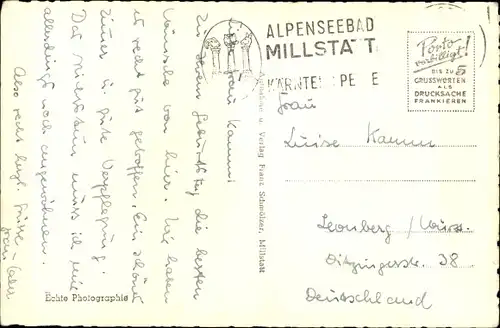 Liebe Frau Kamm!
Zu Ihrem Geburtstag die besten
Wünsche von hier. Wir haben
es recht gut getroffen, ein schönes
Zimmer u. gute Verpflegung.
Das Nichtstun muss ich mir
allerdings noch angewöhnen.
Also recht herzl. Grüsse
Echte Photographie
u. Verlag Franz Schmölzer, Millstatt
ALPENSEEBAD
MILLSTATT
KÄRNTEN
Porto
verbilligt!
BIS ZU 5
GRUSSWORTEN
ALS
DRUCKSACHE
FRANKIEREN
Frau
Luise Kamm
Leonberg / Württ.
Ditzingerstr. 38
Deutschland